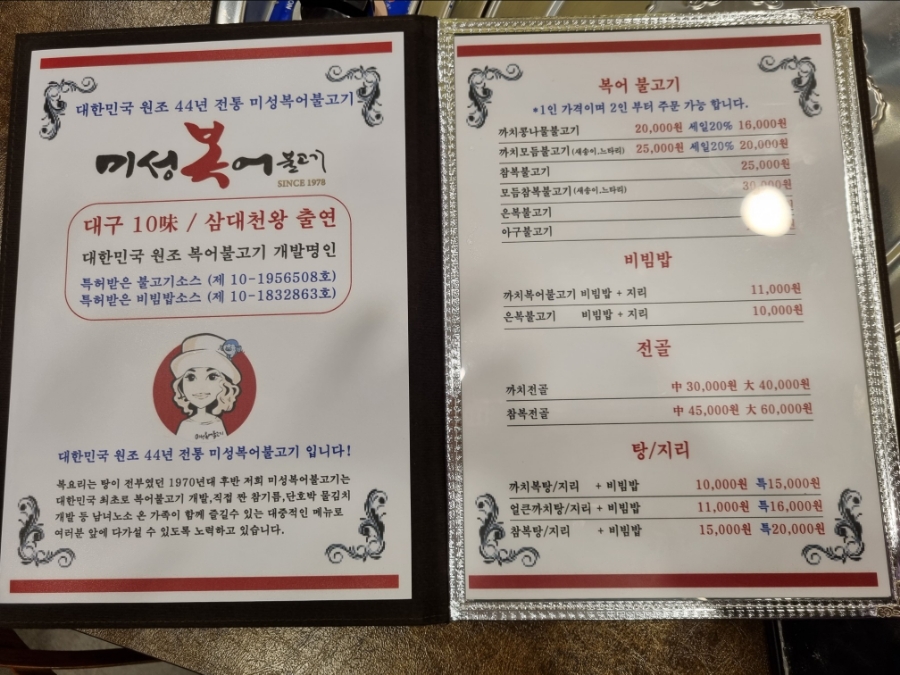 대한민국 원조 44년 전통 미성복어불고기
미성복어불고기
SINCE 1978
대구 10味 / 삼대천왕 출연
대한민국 원조 복어불고기 개발명인
특허받은 불고기소스 (제 10-1956508호)
특허받은 비빔밥소스 (제 10-1832863호)
미성복어불고기
대한민국 원조 44년 전통 미성복어불고기 입니다!
복요리는 탕이 전부였던 1970년대 후반 저희 미성복어불고기는
대한민국 최초로 복어불고기 개발,직접 짠 참기름,단호박 물김치
개발 등 남녀노소 온 가족이 함께 즐길수 있는 대중적인 메뉴로
여러분 앞에 다가설 수 있도록 노력하고 있습니다.
복어 불고기
*1인 가격이며 2인 부터 주문 가능 합니다.
까치콩나물불고기 20,000원 세일20% 16,000원
까치모듬불고기(새송이,느타리) 25,000원 세일20% 20,000원
참복불고기 25,000원
모듬참복불고기(새송이,느타리) 30,000원
은복불고기
아구불고기
비빔밥
까치복어불고기 비빔밥 + 지리 11,000원
은복불고기 비빔밥 + 지리 10,000원
전골
까치전골 中 30,000원 大 40,000원
참복전골 中 45,000원 大 60,000원
탕/지리
까치복탕/지리 + 비빔밥 10,000원 특15,000원
얼큰까치탕/지리 + 비빔밥 11,000원 특16,000원
참복탕/지리 + 비빔밥 15,000원 특20,000원